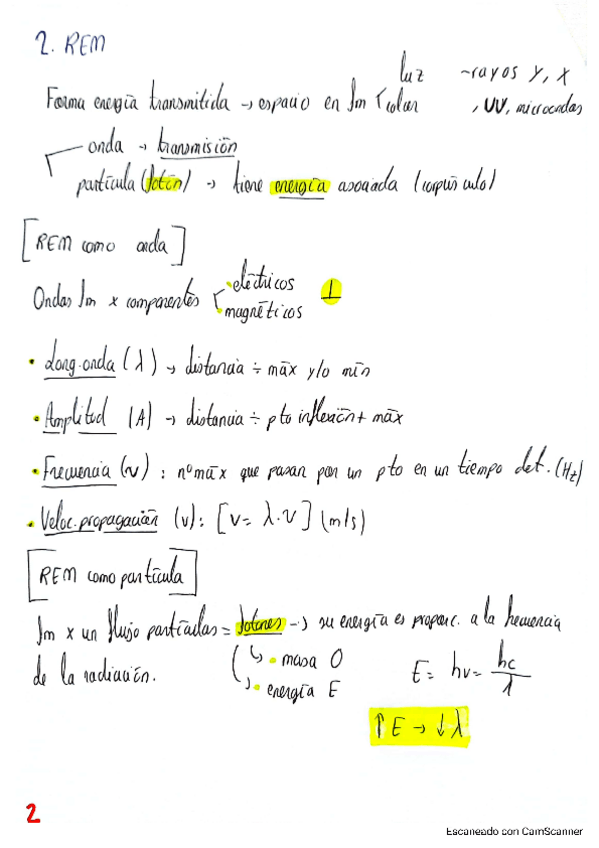 2. REM
luz ~rayos γ, X
Forma energía transmitida → espacio en fm calor , UV, microondas
onda → transmisión
partícula (fotón) → tiene energía asociada (corpúsculo)
[REM como onda]
Ondas fm x componentes eléctricos ⊥
magnéticos
• Long. onda (λ) → distancia ÷ máx y/o mín
• Amplitud (A) → distancia ÷ pto inflexión + máx
• Frecuencia (ν) : nº máx que pasan por un pto en un tiempo det. (Hz)
• Veloc. propagación (v): [v = λ·ν] (m/s)
[REM como partícula]
fm x un flujo partículas = fotones → su energía es proporc. a la frecuencia
de la radiación. ↳ • masa 0 E = hν = hc/λ
↳ • energía E
↑E → ↓λ
2
Escaneado con CamScanner